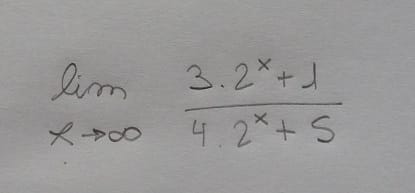 lim 3.2ˣ+1
x→∞ 4.2ˣ+5